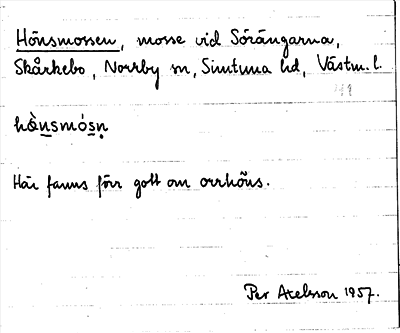 Hönsmossen, mosse vid Sörängarna,
Skårkebo, Norrby sn, Simtuna hd, Västm. l.
hὼnsmósn̥
Här fanns förr gott om orrhöns.
Per Axelsson 1957.